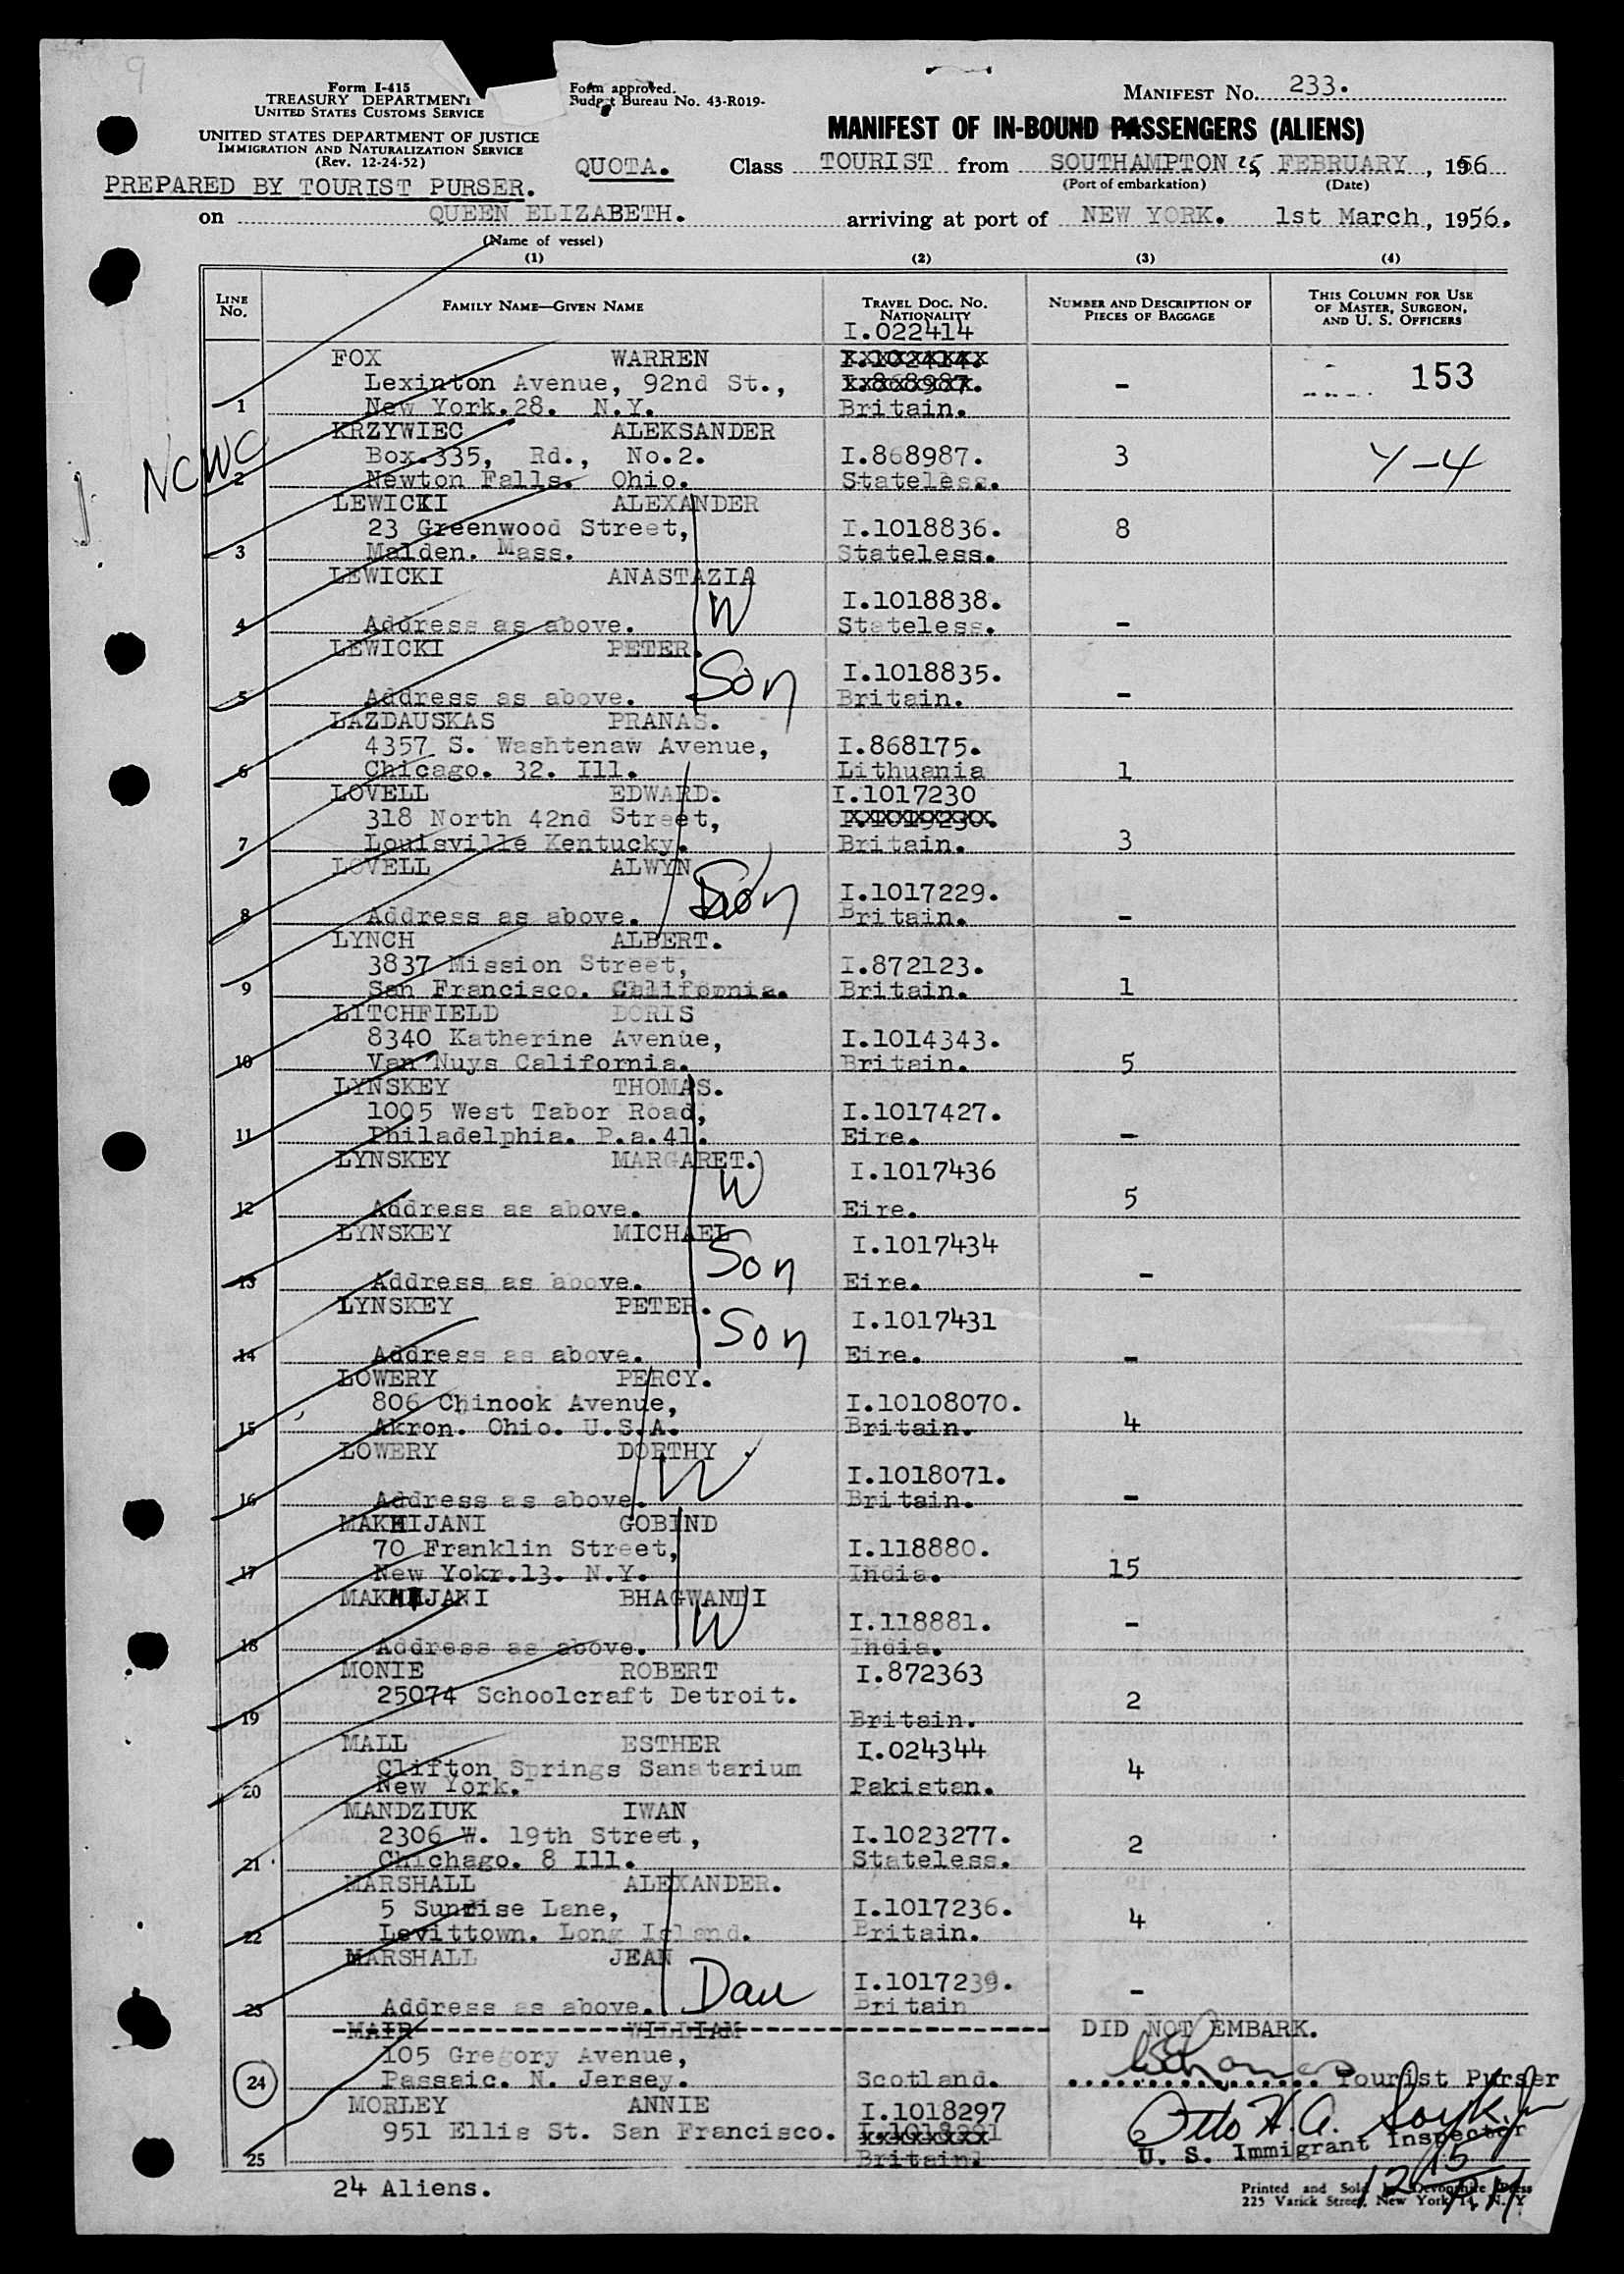 9
Form I-415
TREASURY DEPARTMENT
UNITED STATES CUSTOMS SERVICE
UNITED STATES DEPARTMENT OF JUSTICE
IMMIGRATION AND NATURALIZATION SERVICE
(Rev. 12-24-52)
PREPARED BY TOURIST PURSER.
Form approved.
Budget Bureau No. 43-R019-
MANIFEST NO. 233.
MANIFEST OF IN-BOUND PASSENGERS (ALIENS)
QUOTA. Class TOURIST from SOUTHAMPTON 25 FEBRUARY, 1956
(Port of embarkation) (Date)
on QUEEN ELIZABETH. arriving at port of NEW YORK. 1st March, 1956.
(Name of vessel)
(1) (2) (3) (4)
LINE NO. FAMILY NAME—GIVEN NAME TRAVEL DOC. NO. NATIONALITY NUMBER AND DESCRIPTION OF PIECES OF BAGGAGE THIS COLUMN FOR USE OF MASTER, SURGEON, AND U. S. OFFICERS
I.022414
FOX WARREN I.1024144.
Lexinton Avenue, 92nd St., I.868987. - 153
1 New York.28. N.Y. Britain.
KRZYWIEC ALEKSANDER
NCWC Box.335, Rd., No.2. I.868987. 3 Y-4
2 Newton Falls. Ohio. Stateless.
LEWICKI ALEXANDER
23 Greenwood Street, I.1018836. 8
3 Malden. Mass. Stateless.
LEWICKI ANASTAZIA
W I.1018838.
4 Address as above. Stateless. -
LEWICKI PETER.
Son I.1018835.
5 Address as above. Britain. -
LAZDAUSKAS PRANAS.
4357 S. Washtenaw Avenue, I.868175.
6 Chicago. 32. Ill. Lithuania 1
LOVELL EDWARD. I.1017230
318 North 42nd Street, I.1019230.
7 Louisville Kentucky. Britain. 3
LOVELL ALWYN
Son I.1017229.
8 Address as above. Britain. -
LYNCH ALBERT.
3837 Mission Street, I.872123.
9 San Francisco. California. Britain. 1
LITCHFIELD DORIS
8340 Katherine Avenue, I.1014343.
10 Van Nuys California. Britain. 5
LYNSKEY THOMAS.
1005 West Tabor Road, I.1017427.
11 Philadelphia. P.a.41. Eire. -
LYNSKEY MARGARET. I.1017436
W 5
12 Address as above. Eire.
LYNSKEY MICHAEL I.1017434
Son
13 Address as above. Eire. -
LYNSKEY PETER. I.1017431
Son
14 Address as above. Eire. -
LOWERY PERCY.
806 Chinook Avenue, I.10108070.
15 Akron. Ohio. U.S.A. Britain. 4
LOWERY DORTHY
W I.1018071.
16 Address as above. Britain. -
MAKHIJANI GOBIND
70 Franklin Street, I.118880.
17 New Yokr.13. N.Y. India. 15
MAKHIJANI BHAGWANDI
W I.118881. -
18 Address as above. India.
MONIE ROBERT I.872363
25074 Schoolcraft Detroit. 2
19 Britain.
MALL ESTHER I.024344
Clifton Springs Sanatarium 4
20 New York. Pakistan.
MANDZIUK IWAN
2306 W. 19th Street, I.1023277. 2
21 Chichago. 8 Ill. Stateless.
MARSHALL ALEXANDER.
5 Sunrise Lane, I.1017236. 4
22 Levittown. Long Island. Britain.
MARSHALL JEAN
Dau I.1017239. -
23 Address as above. Britain
MAIR WILLIAM DID NOT EMBARK.
105 Gregory Avenue,
24 Passaic. N. Jersey. Scotland. Tourist Purser
MORLEY ANNIE I.1018297
951 Ellis St. San Francisco. Otto H.A.
25 Britain. U. S. Immigrant Inspector
24 Aliens. 12 15 P.M.
Printed and Sold by Devonshire Press
225 Varick Street, New York 14, N. Y